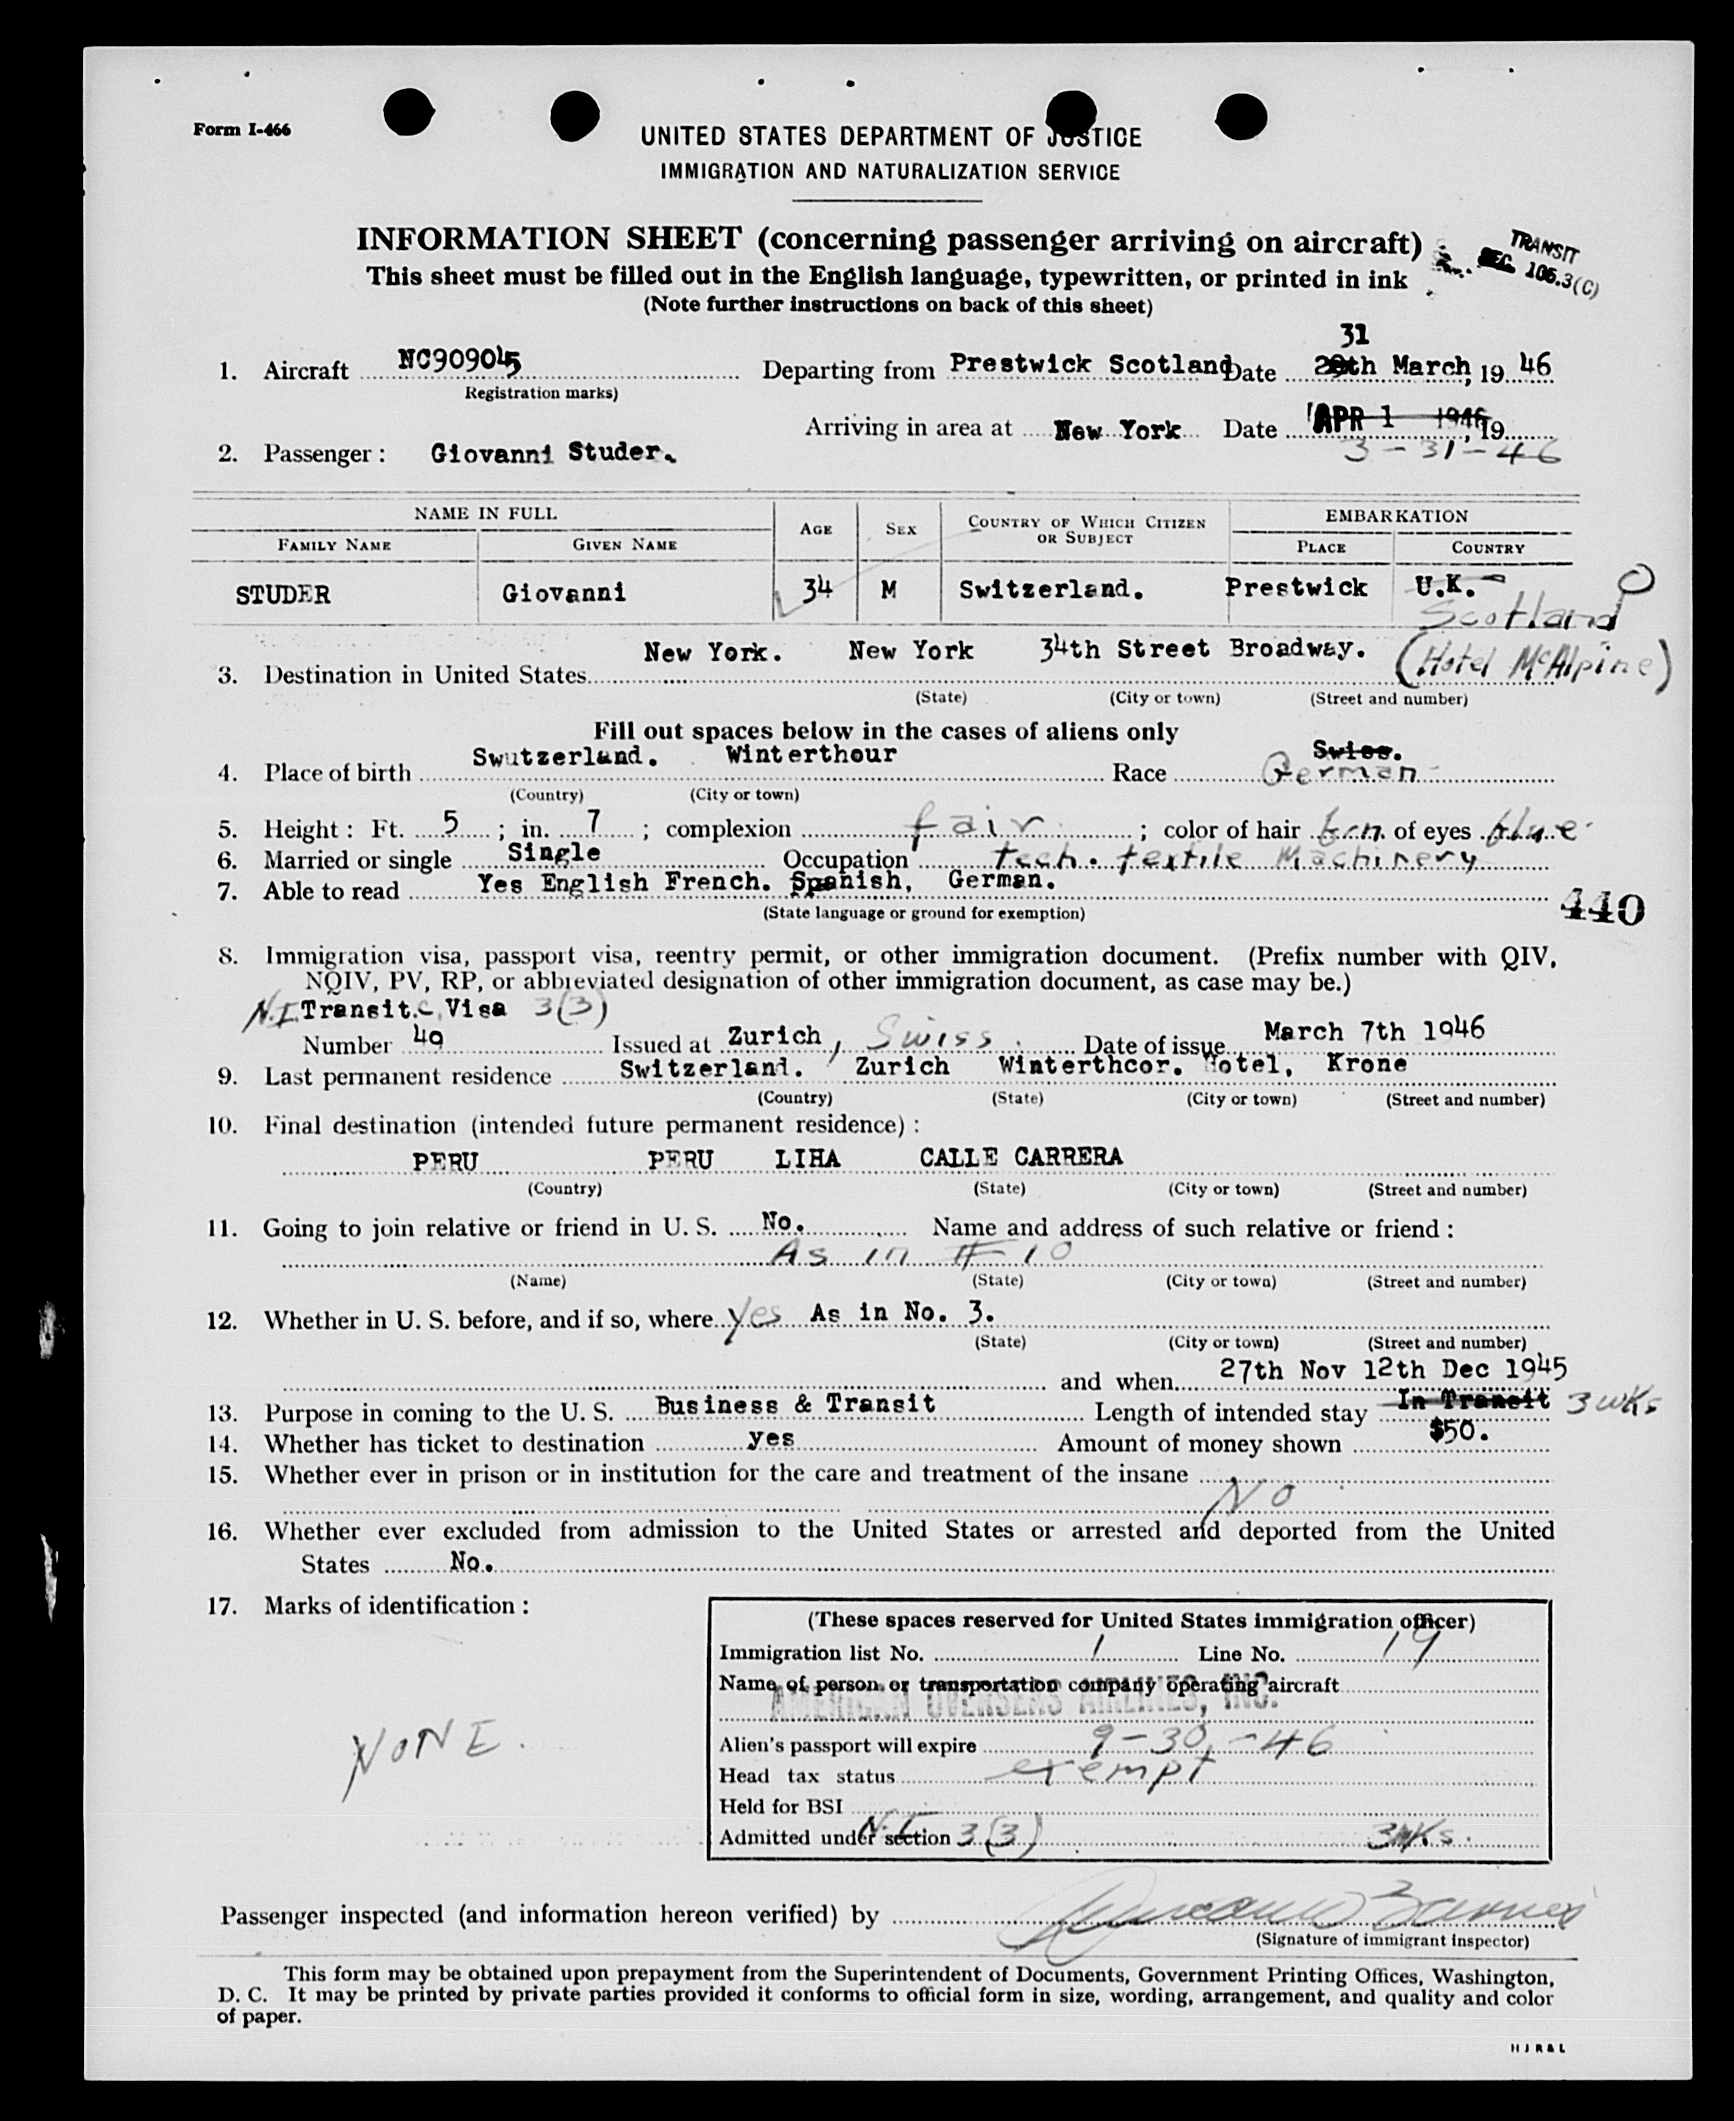 Form I-466
UNITED STATES DEPARTMENT OF JUSTICE
IMMIGRATION AND NATURALIZATION SERVICE
INFORMATION SHEET (concerning passenger arriving on aircraft)
TRANSIT
SEC. 105.3(C)
This sheet must be filled out in the English language, typewritten, or printed in ink
(Note further instructions on back of this sheet)
31
1. Aircraft NC90905 Departing from Prestwick Scotland Date 29th March, 19 46
(Registration marks)
Arriving in area at New York Date APR 1 1946, 19
3-31-46
2. Passenger: Giovanni Studer.
NAME IN FULL AGE SEX COUNTRY OF WHICH CITIZEN OR SUBJECT EMBARKATION
FAMILY NAME GIVEN NAME PLACE COUNTRY
STUDER Giovanni 34 M Switzerland. Prestwick U.K.
Scotland
3. Destination in United States New York. New York 34th Street Broadway. (Hotel McAlpine)
(State) (City or town) (Street and number)
Fill out spaces below in the cases of aliens only
4. Place of birth Swutzerland. Winterthour Race Swiss. German
(Country) (City or town)
5. Height: Ft. 5; in. 7; complexion fair; color of hair brn. of eyes blue
6. Married or single Single Occupation tech. textile Machinery
7. Able to read Yes English French. Spanish, German.
(State language or ground for exemption)
440
8. Immigration visa, passport visa, reentry permit, or other immigration document. (Prefix number with QIV,
NQIV, PV, RP, or abbreviated designation of other immigration document, as case may be.)
N.I. Transit.C. Visa 3(3)
Number 49 Issued at Zurich, Swiss. Date of issue March 7th 1946
9. Last permanent residence Switzerland. Zurich Winterthcor. Hotel, Krone
(Country) (State) (City or town) (Street and number)
10. Final destination (intended future permanent residence):
PERU PERU LIHA CALLE CARRERA
(Country) (State) (City or town) (Street and number)
11. Going to join relative or friend in U. S. No. Name and address of such relative or friend:
As in # 10
(Name) (State) (City or town) (Street and number)
12. Whether in U. S. before, and if so, where Yes As in No. 3.
(State) (City or town) (Street and number)
and when 27th Nov 12th Dec 1945
13. Purpose in coming to the U. S. Business & Transit Length of intended stay In Transit 3 wks
14. Whether has ticket to destination yes Amount of money shown $50.
15. Whether ever in prison or in institution for the care and treatment of the insane
No
16. Whether ever excluded from admission to the United States or arrested and deported from the United
States No.
17. Marks of identification:
NONE.
(These spaces reserved for United States immigration officer)
Immigration list No. 1 Line No. 19
Name of person or transportation company operating aircraft
AMERICAN OVERSEAS AIRLINES, INC.
Alien's passport will expire 9-30-46
Head tax status exempt
Held for BSI
Admitted under section N.I. 3(3) 3wks.
Passenger inspected (and information hereon verified) by
(Signature of immigrant inspector)
This form may be obtained upon prepayment from the Superintendent of Documents, Government Printing Offices, Washington,
D. C. It may be printed by private parties provided it conforms to official form in size, wording, arrangement, and quality and color
of paper.
H J R & L